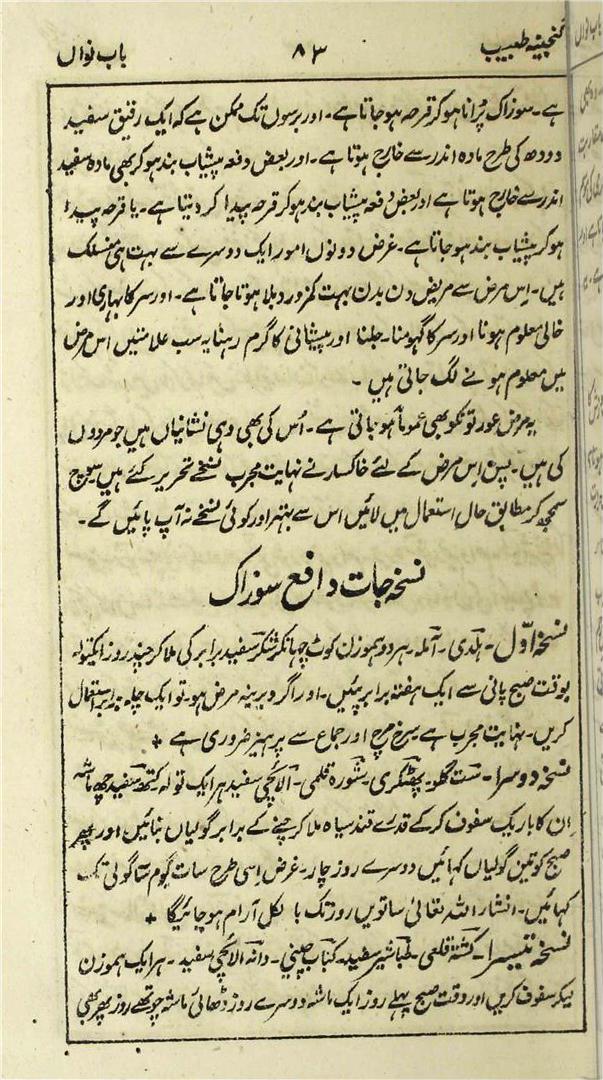 گنجینہ طبیب ۸۳ باب نواں
ہے۔ سوزاک پُرانا ہوکر قرحہ ہو جاتا ہے۔ اور برسوں تک ممکن ہے کہ ایک رقیق سفید
دودھ کی طرح مادہ اندر سے خارج ہوتا ہے۔ اور بعض دفعہ پیشاب بند ہوکر بھی مادہ سفید
اندر سے خارج ہوتا ہے اور بعض دفعہ پیشاب بند ہوکر قرحہ پیدا کر دیتا ہے۔ یا قرحہ پیدا
ہوکر پیشاب بند ہو جاتا ہے۔ غرض دونوں امور ایک دوسرے سے بہت ہی منسلک
ہیں۔ اس مرض سے مریض دن بدن بہت کمزور دبلا ہوتا جاتا ہے۔ اور سر کا بہاری اور
خالی معلوم ہونا اور سر کا گہومنا۔ جلنا اور پیشانی کا گرم رہنا یہ سب علامتیں اس مرض
میں معلوم ہونے لگ جاتی ہیں۔
یہ مرض عورتونکو بھی عموماً ہو جاتی ہے۔ اُس کی بھی وہی نشانیاں ہیں جو مردوں
کی ہیں۔ پس اس مرض کے لئے خاکسار نے نہایت مجرب نسخے تحریر کئے ہیں سوچ
سمجھ کر مطابق حال استعمال میں لائیں اس سے بہتر اور کوئی نسخے نہ آپ پائیں گے۔
نسخہ جات دافع سوزاک
نسخہ اوّل۔ ہلدی۔ آملہ۔ ہر دو ہموزن کوٹ چہانکر شکر سفید برابر کی ملا کر چند روز ایکتولہ
بوقت صبح پانی سے ایک ہفتہ برابر پئیں۔ اور اگر دیرینہ مرض ہو۔ تو ایک چلہ برابر استعمال
کریں۔ نہایت مجرب ہے سرخ مرچ اور جماع سے پرہیز ضروری ہے +
نسخہ دوسرا۔ ست گلو۔ پھٹکری۔ شورہ قلمی۔ الائچی سفید ہر ایک تولہ کتھہ سفید چھ ماشہ
اِن کا باریک سفوف کرکے قدرے قند سیاہ ملا کر چنے کے برابر گولیاں بنائیں اور پھر
صبح کو تین گولیاں کہائیں دوسرے روز چار۔ غرض اِسی طرح سات یوم سات گولی تک
کہائیں۔ انشاء اللہ تعالیٰ ساتویں روز تک بالکل آرام ہو جائیگا +
نسخہ تیسرا۔ کشتہ قلعی۔ طباشیر سفید۔ کباب چینی۔ دانہ الائچی سفید۔ ہر ایک ہموزن
لیکر سفوف کریں اور وقت صبح پہلے روز ایک ماشہ دوسرے روز ڈھائی ماشہ چوتھے روز پھر بھی